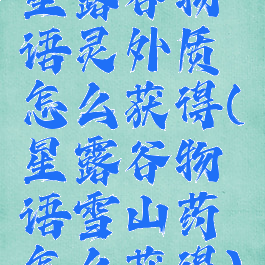 星露谷物
语灵外质
怎么获得(
星露谷物
语雪山药
怎么获得)